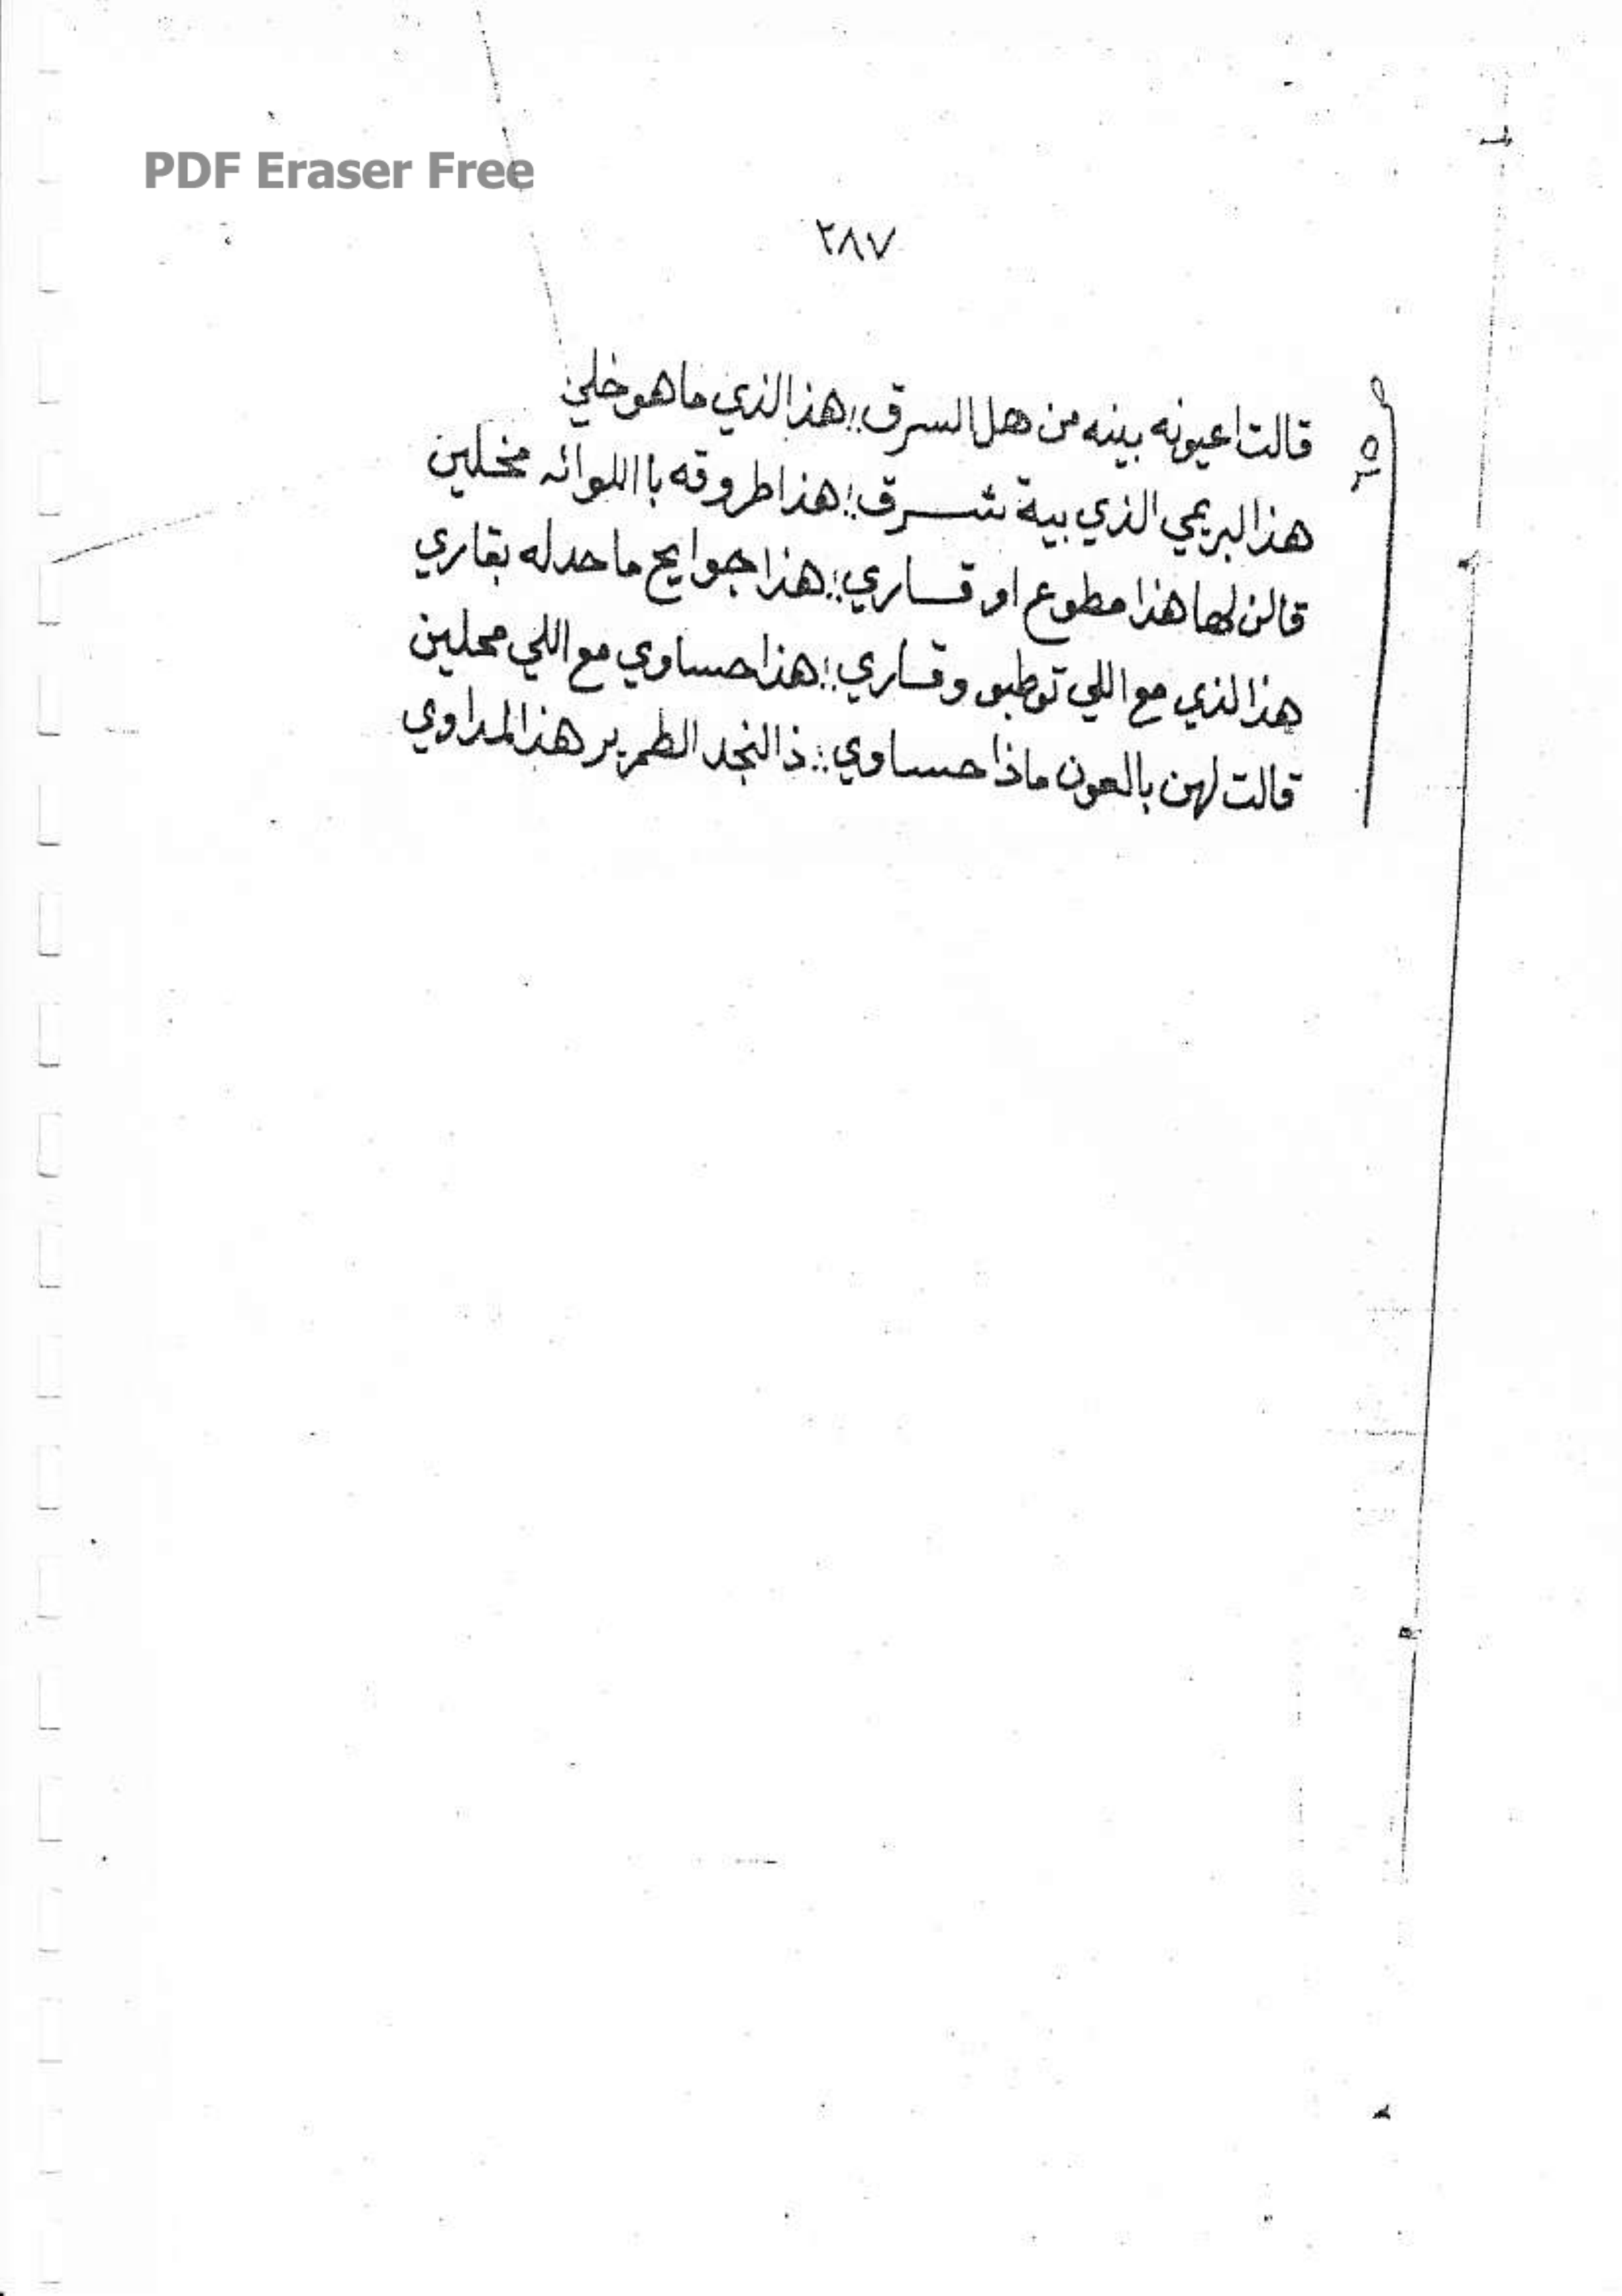 PDF Eraser Free
٢٨٧
قالت اعيونه بينه من هل السرق :: هذا الذي ما هو خلي
هذا البريمي الذي بية شرق :: هذا طروقه با اللوائه مخلين
قالن لها هذا مطوع او قساري :: هذا جوايح ما حد له بقاري
هذا الذي مع اللي توطبو وقساري :: هذا حساوي مع اللي محلين
قالت لهن بالعون ماذا حساوي :: ذا النجد الطمرير هذا المداوي